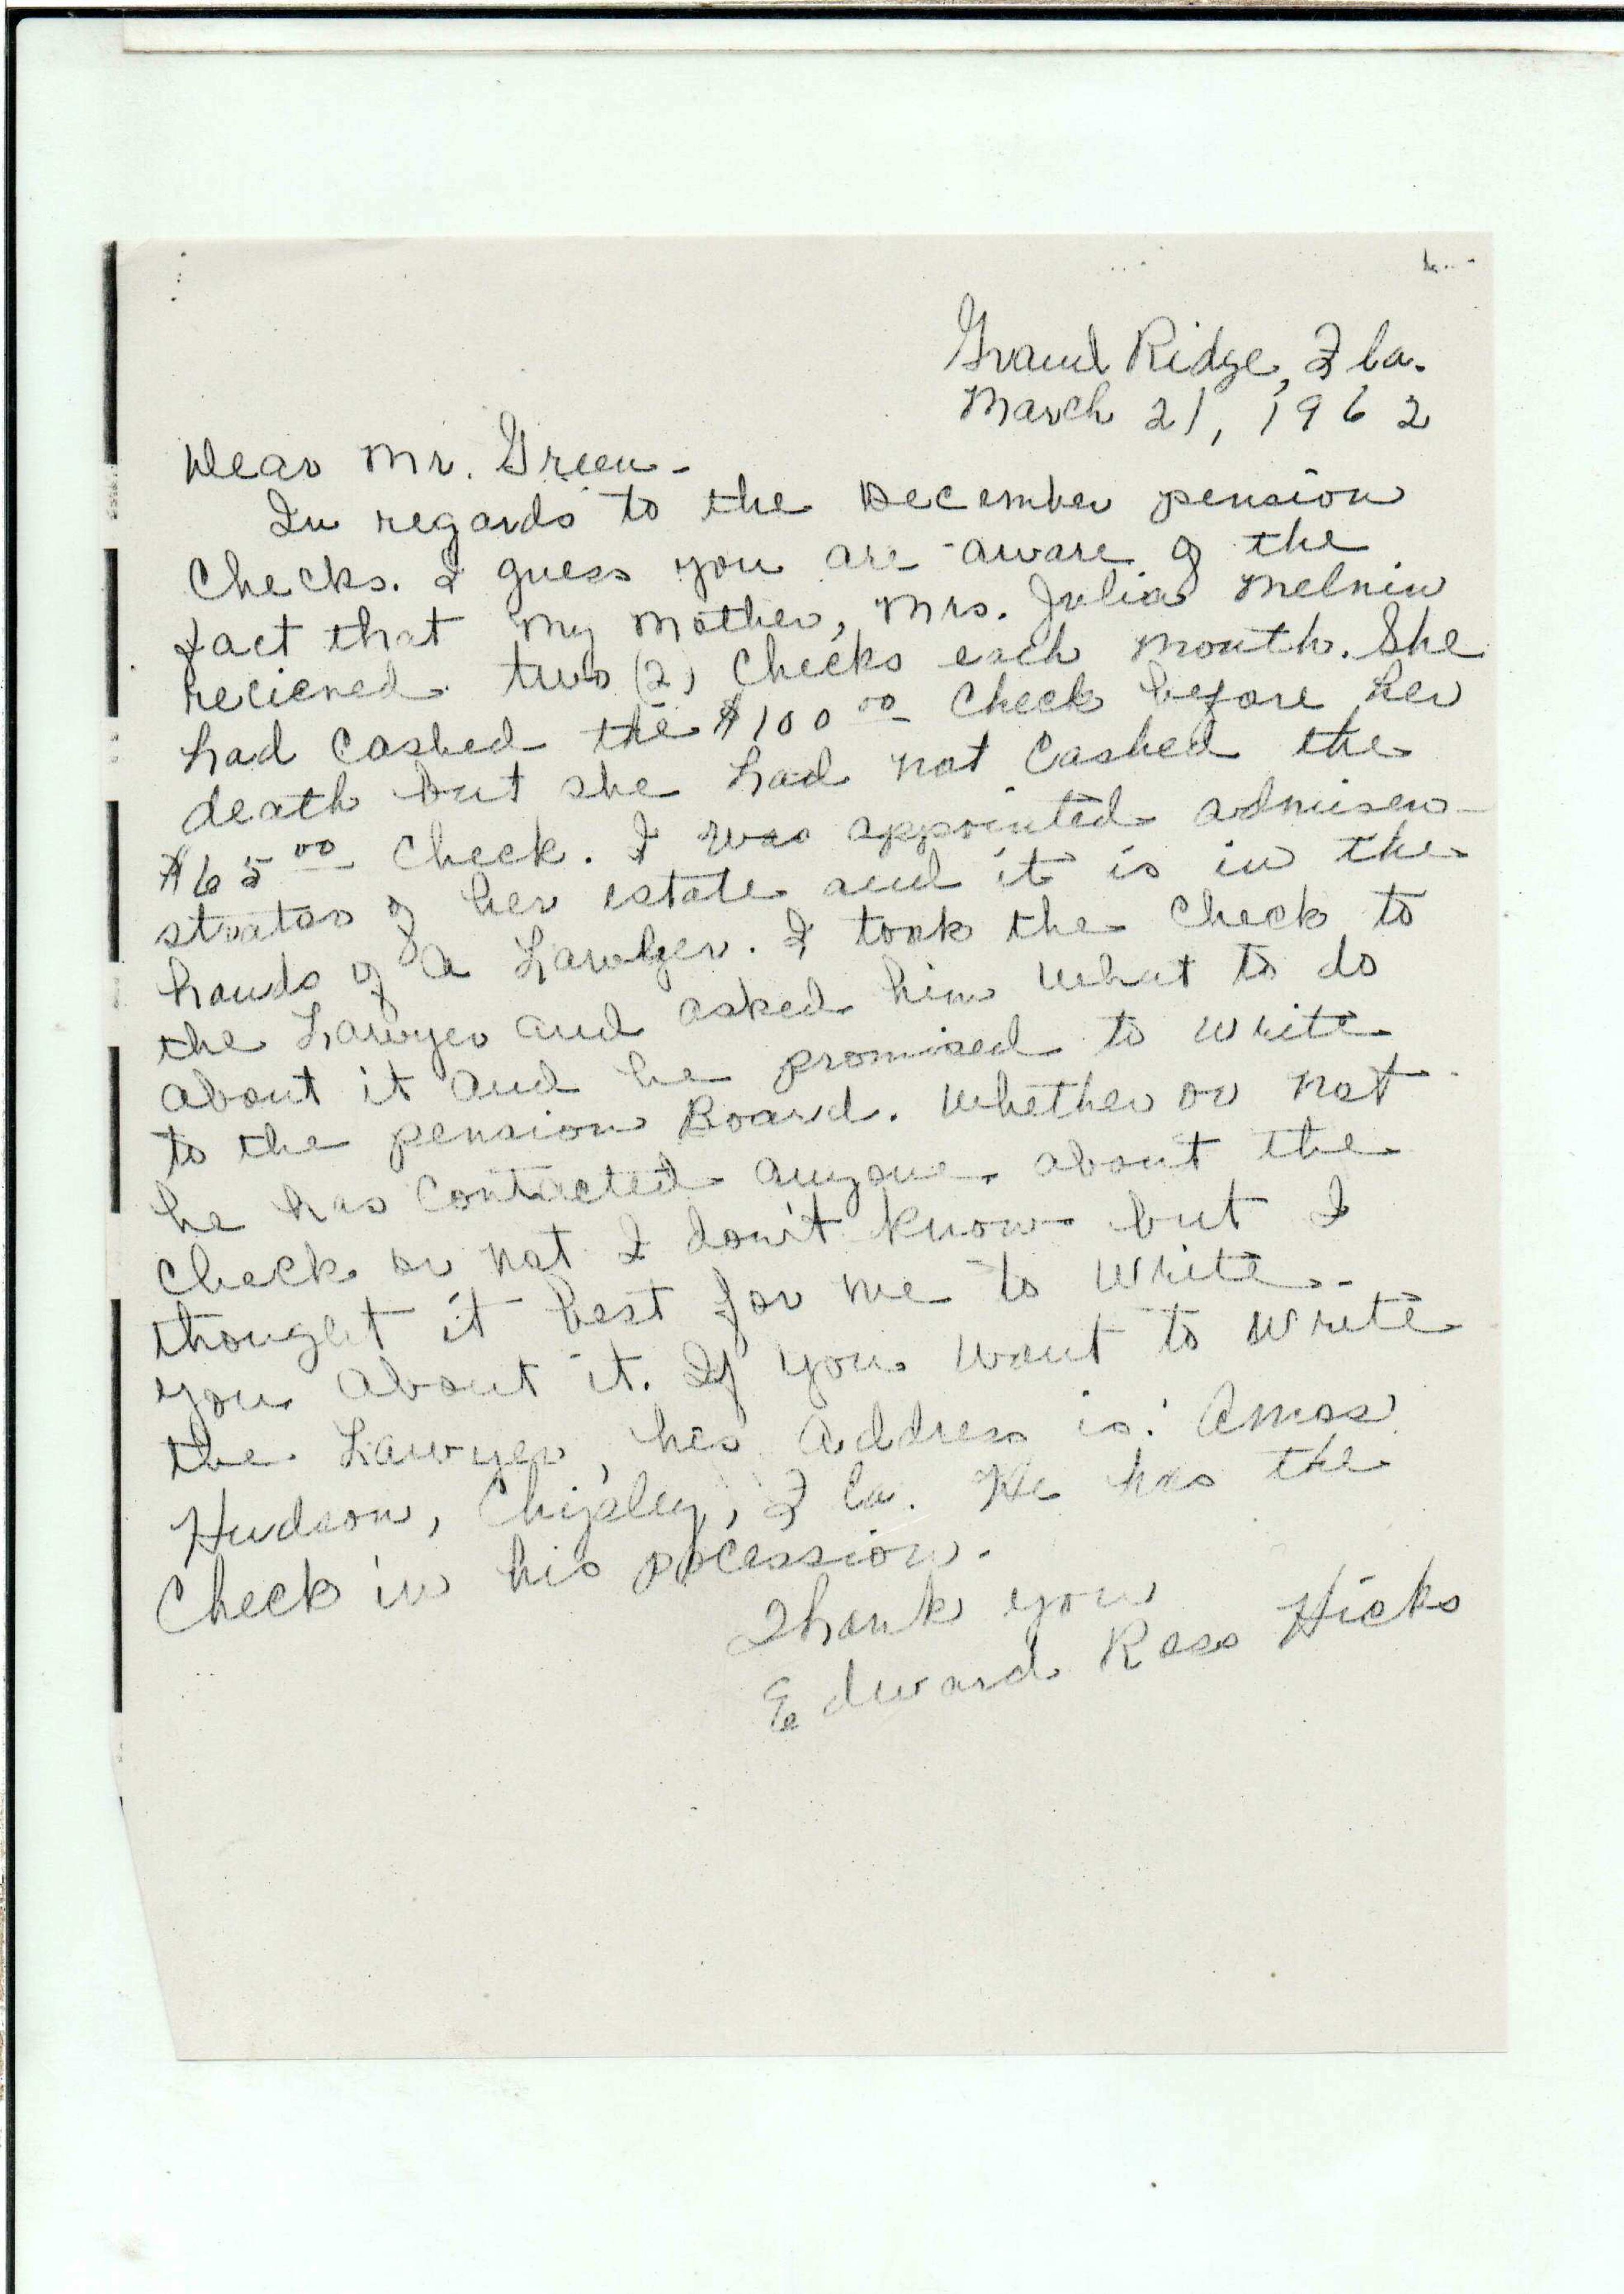 Grand Ridge, Fla.
March 21, 1962
Dear Mr. Green -
In regards to the December pension
Checks. I guess you are aware of the
fact that my mother, Mrs. Julia Melnin
recieved two (2) Checks each month. She
had cashed the $100 00 Check before her
death but she had not cashed the
$65 00 Check. I was appointed admisen-
strator of her estate and it is in the
hands of a Lawyer. I took the check to
the Lawyer and asked him what to do
about it and he promised to write
to the pension Board. Whether or not
he has contacted anyone about the
check or not I don't know but I
thought it best for me to write
you about it. If you want to write
the Lawyer, hes address is: Amos
Hudson, Chipley, Fla. He has the
Check in his pocession.
Thank you
Edward Ross Hicks